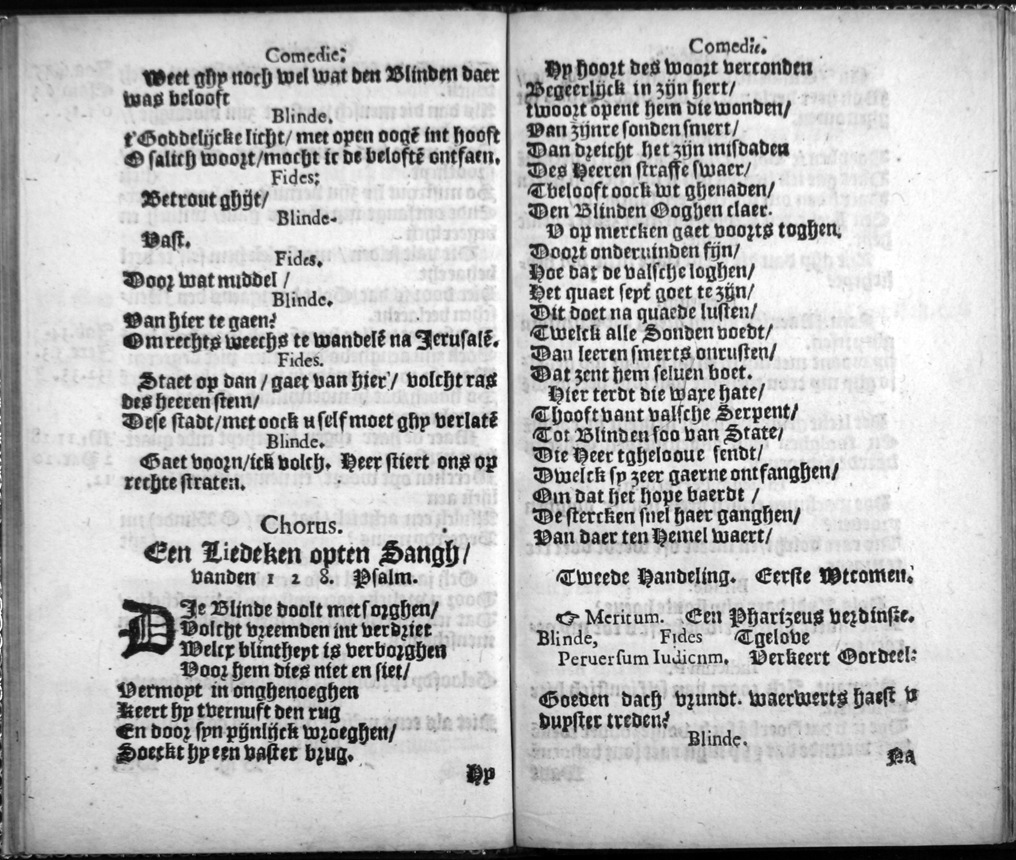 Comedie:
Weet ghy noch wel wat den Blinden daer
was belooft
Blinde.
t'Goddelijcke licht/ met open oogē int hooft
O salich woort/mocht ic de beloftē ontfaen.
Fides:
Betrout ghijt/
Blinde-
Vast.
Fides.
Door wat middel /
Blinde.
Van hier te gaen?
Om rechts weechs te wandelē na Jerusalē.
Fides.
Staet op dan / gaet van hier / volcht ras
des heeren stem/
Dese stadt/met oock u self moet ghy verlatē
Blinde.
Gaet voorn/ick volch. Heer stiert ons op
rechte straten.
Chorus.
Een Liedeken opten Sangh/
vanden 128. Psalm.
DIe Blinde doolt met sorghen/
Volcht vreemden int verdriet
Welcx blintheyt is verborghen
Voor hem dies niet en siet/
Vermoyt in onghenoeghen
Keert hy tvernuft den rug
En door syn pijnlijck wroeghen/
Soeckt hy een vaster brug.
Hy
Comedie.
Hy hoort des woort verconden
Begeerlijck in zijn hert/
twoort opent hem die wonden/
Van zijnre sonden smert/
Dan dreicht het zijn misdaden
Des Heeren straffe swaer/
Tbelooft oock wt ghenaden/
Den Blinden Ooghen claer.
V op mercken gaet voorts toghen.
Doort ondervinden fijn/
Hoe dat de valsche loghen/
Het quaet seyt goet te zijn/
Dit doet na quaede lusten/
Twelck alle Sonden voedt/
Dan leeren smerts onrusten/
Dat zent hem selven boet.
Hier terdt die ware hate/
Thooft vant valsche Serpent/
Tot Blinden soo van State/
Die Heer tghelooue sendt/
Dwelck sy zeer gaerne ontfanghen/
Om dat het hope baerdt /
De stercken snel haer ganghen/
Van daer ten Hemel waert/
Tweede Handeling. Eerste Wtcomen.
☞ Meritum. Een Pharizeus verdinste.
Blinde, Fides Tgelove
Peruersum Iudicnm. Verkeert Oordeel:
Goeden dach vrundt. waerwerts haest v
duyster treden?
Blinde.
Na